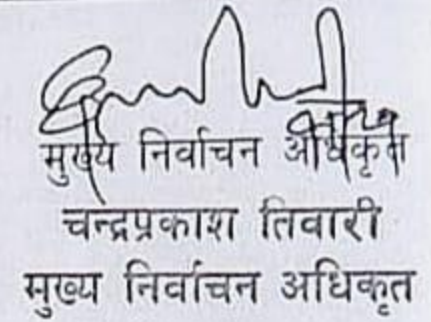 मुख्य निर्वाचन अधिकृत
चन्द्रप्रकाश तिवारी
मुख्य निर्वाचन अधिकृत